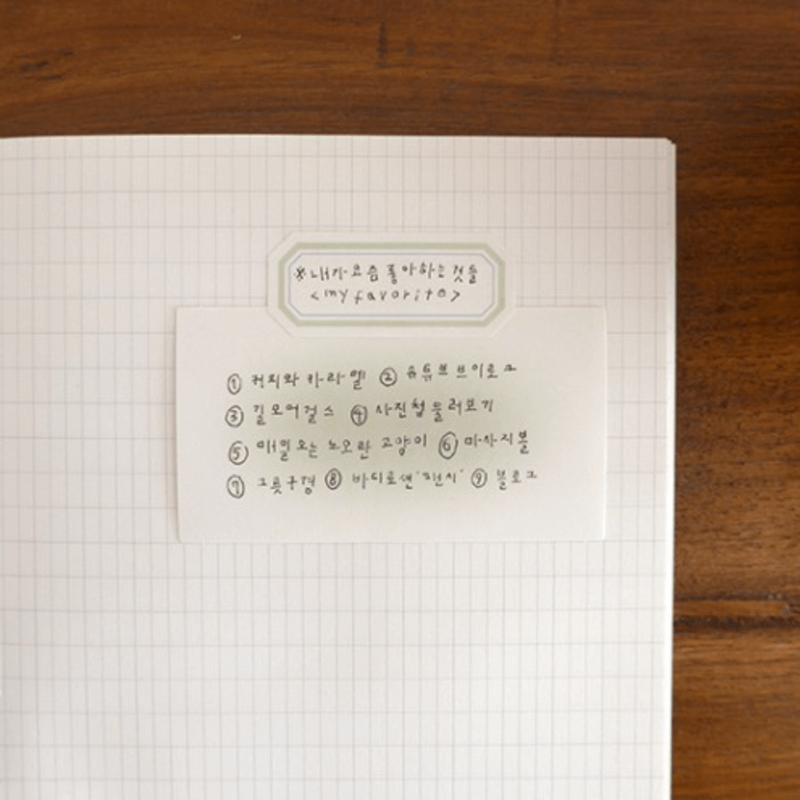 ※내가 요즘 좋아하는 것들
<my favorite>
① 커피와 카라멜 ② 유튜브 브이로그
③ 길모어걸스 ④ 사진첩 둘러보기
⑤ 매일 오는 노오란 고양이 ⑥ 마사지볼
⑦ 그릇구경 ⑧ 바디로션 ⑨ 블로그